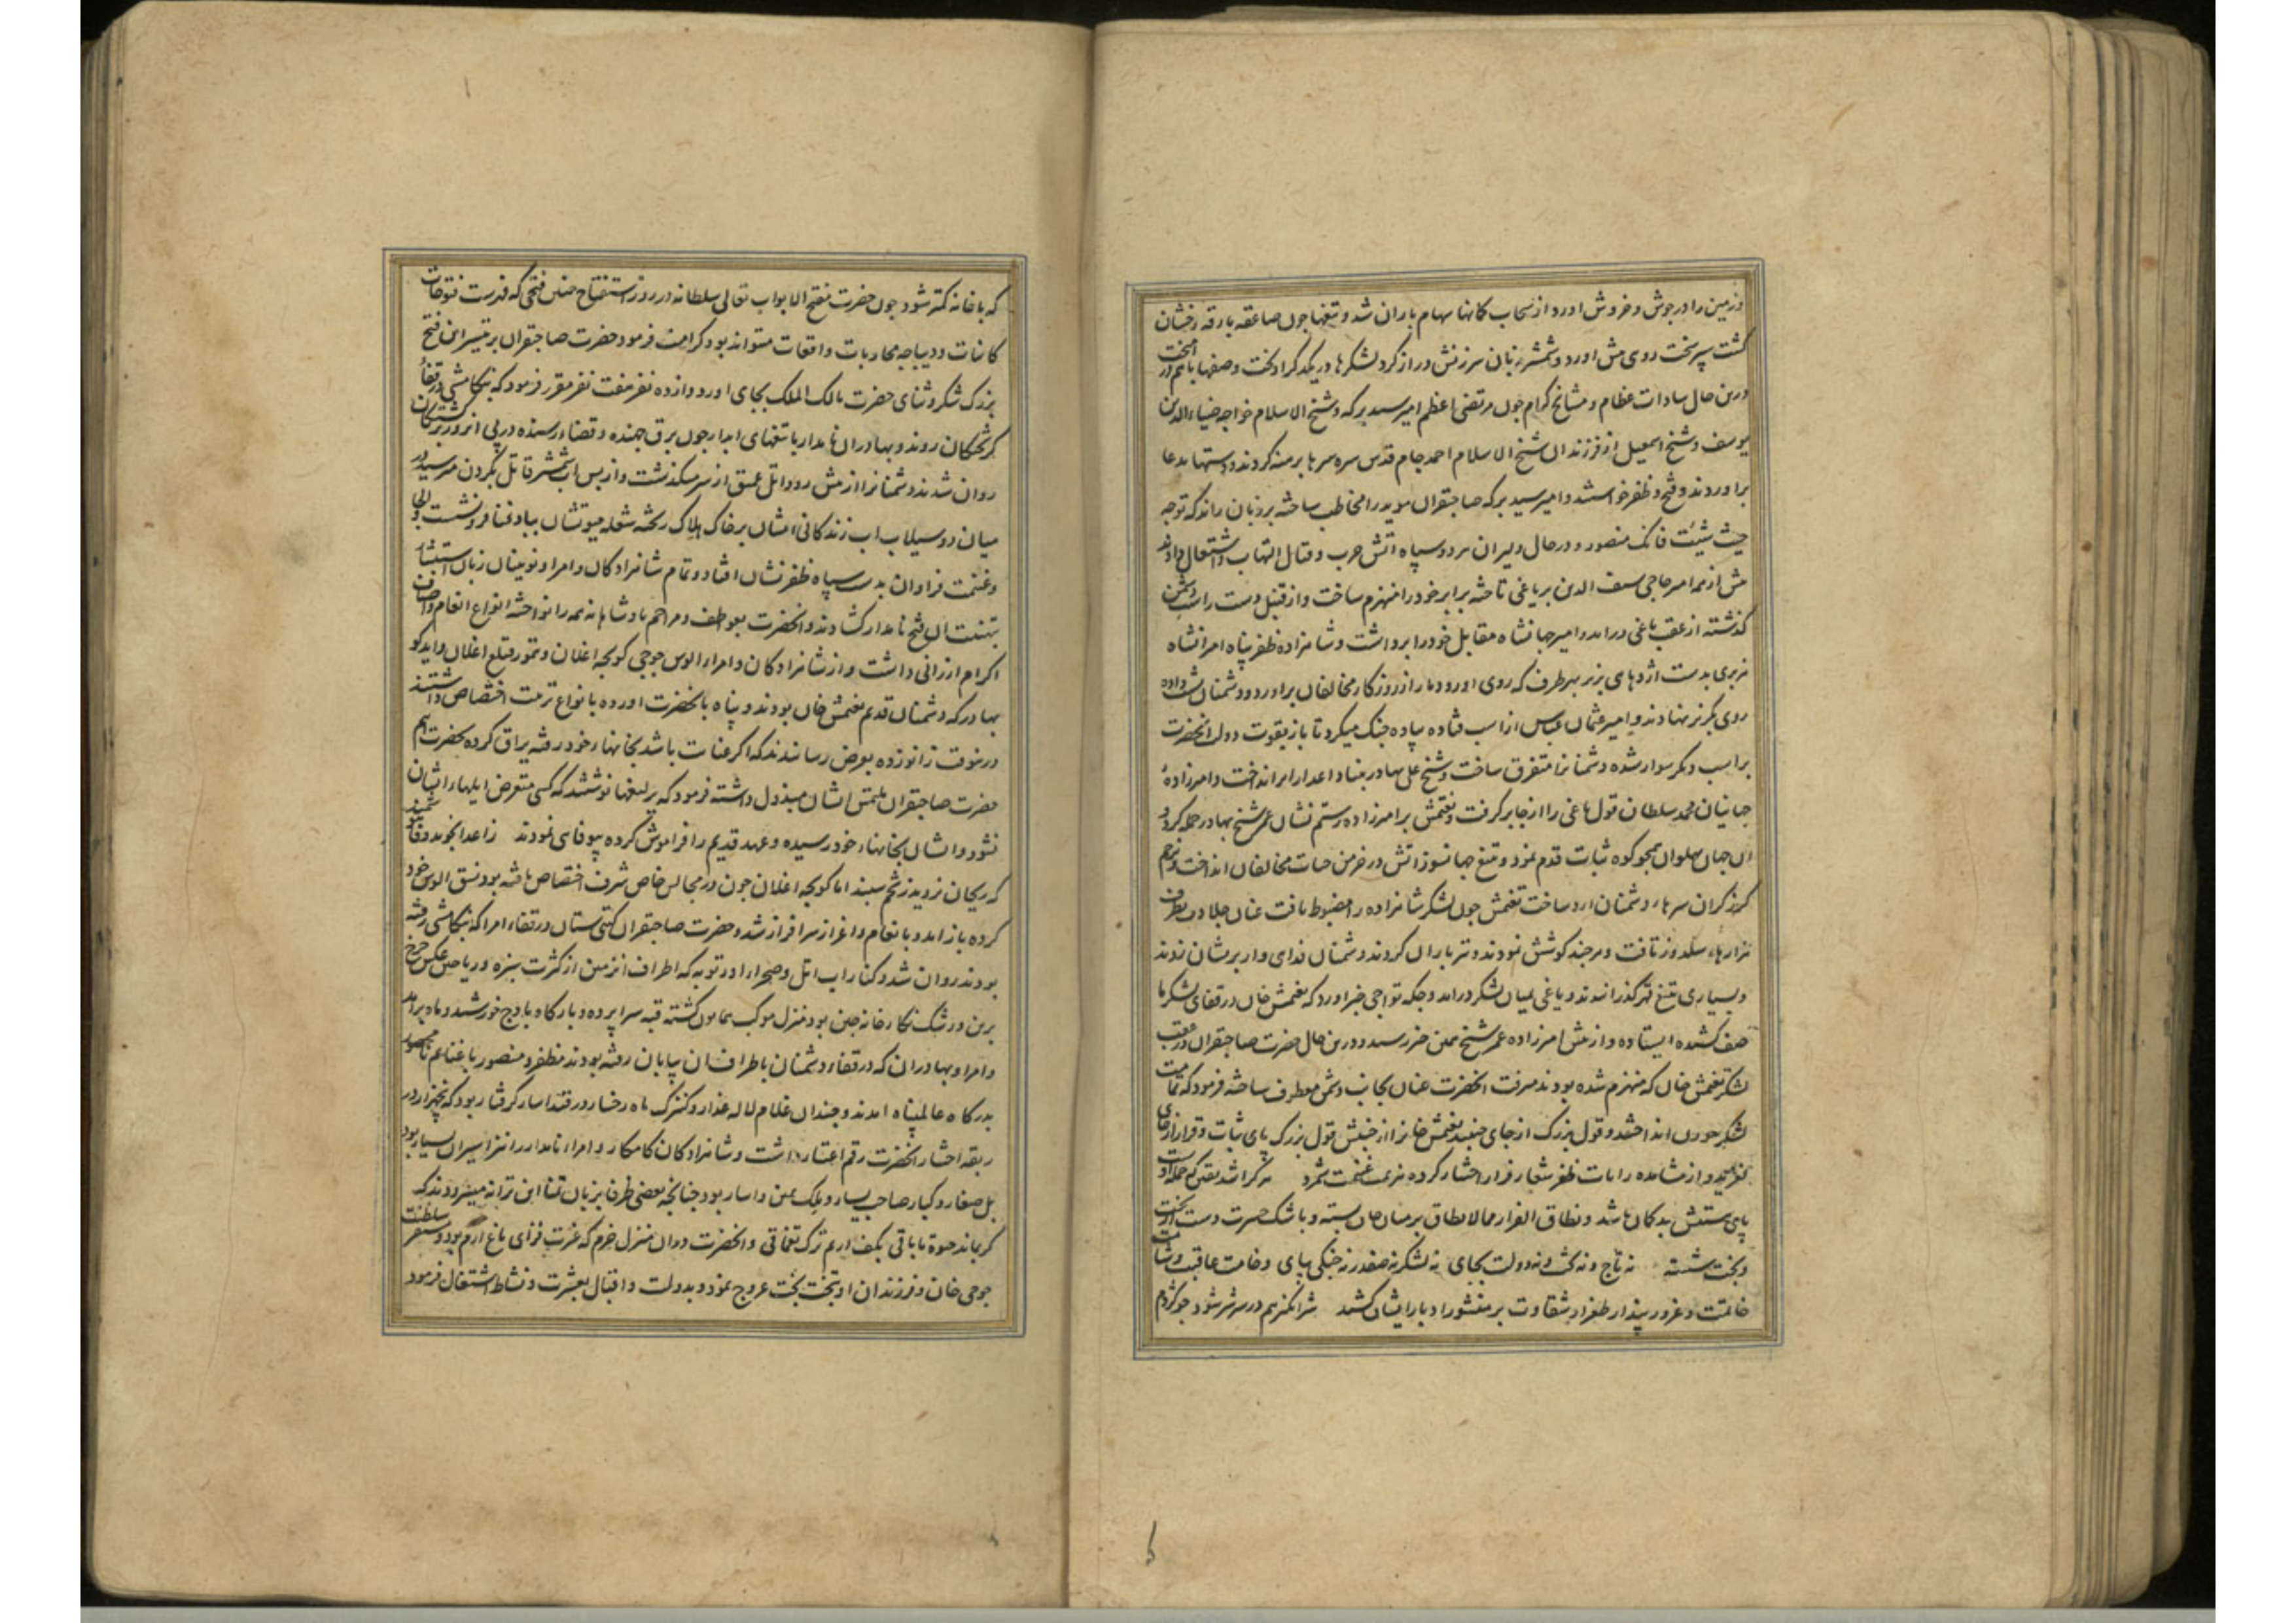 و زمین را در جوش و خروش اورد و از سحاب کمانها سهام باران شد و تیغها چون صاعقه بارقه رخشان
گشت سپر سخت روی پیش اورد و شمشیر زبان سرزنش دراز کرد لشکرها در یکدیگر اویخت و صفها باهم در امیخت
درین حال سادات عظام و مشایخ کرام چون مرتضی اعظم امیر سید برکه و شیخ الاسلام خواجه ضیاءالدین
یوسف و شیخ اسمعیل از فرزندان شیخ الاسلام احمد جام قدس سره سرها برهنه کردند و دستها بدعا
براوردند و فتح و ظفر خواستند و امیر سید برکه صاحبقران موید را مخاطب ساخته بر زبان راند که توجه
حیث شئت فانک منصور و در حال دلیران هر دو سپاه اتش حرب و قتال التهاب و اشتعال دادند
پیش از همه امیر حاجی سیف الدین بر یاغی تاخته برابر خود را منهزم ساخت و از قنبل دست راست دشمن
گذشته از عقب یاغی درامد و امیر جهانشاه مقابل خود را برداشت و شاهزاده ظفرپناه امیرانشاه
هزبری بدست اژدهای بزیر بهر طرف که روی اورد دمار از روزگار مخالفان براورد و دشمنان پشت داده
روی بگریز نهادند و امیر عثمان عباس از اسب فتاده پیاده جنگ میکرد تا باز بقوت دولت انحضرت
بر اسب دیگر سوار شده دشمنانرا متفرق ساخت و شیخ علی بهادر بنیاد اعدا را برانداخت و امیرزاده
جهانیان محمد سلطان قول یاغی را از جا برگرفت و تغتمش بر امیرزاده رستم نشان عمر شیخ بهادر حمله کرد و
ان جهان پهلوان همچو کوه ثبات قدم نمود و تیغ جهانسوز اتش در خرمن حیات مخالفان انداخت و بزخم
گرز گران سرهای دشمنان ارد ساخت تغتمش چون لشکر شاهزاده را مضبوط یافت عنان جلادت بطرف
هزارهاء سلدوز تافت و هرچند کوشش نمودند و تیرباران کردند دشمنان فدای وار بریشان زدند
و بسیاری بتیغ قهر گذرانیدند و یاغی بمیان لشکر درامد و جکه تواجی خبر اورد که تغتمش خان در قفای لشکر ما
صف کشیده ایستاده و از پیش امیرزاده عمر شیخ همین خبر رسید و درین حال حضرت صاحبقران در عقب
لشکر تغتمش خان که منهزم شده بودند میرفت انحضرت عنان بجانب دشمن معطوف ساخته فرمود که تمامت
لشکر جورن انداختند و قول بزرگ از جای جنبید تغتمش خانرا از جنبش قول بزرگ پای ثبات و قرار از جای
بلغزید و از مشاهده رایات ظفر شعار فرار اختیار کرده هزیمت غنیمت شمرد
پای بستش بدکمان باشد و نطاق الفرار مما لایطاق بر میان جان بسته و با اشک حسرت دست از تاج
و تخت شسته نه تاج و نه تخت و نه دولت بجای نه لشکر نه صفدر نه جنگی بپای وخامت عاقبت و شامت
خاتمت و غرور پندار طغرای شقاوت بر منشور ادبار ایشان کشید شرانگیز هم در سر شر شود چو کژدم
که با خانه کمتر شود چون حضرت مفتح الابواب تعالی سلطانه در روز استفتاح چنین فتحی که فهرست فتوحات
کاینات و دیباچه محاربات واقعات میتواند بود کرامت فرمود حضرت صاحبقران بر تیسیر این فتح
بزرگ شکر و ثنای حضرت مالک الملک بجای اورد و از ده نفر هفت نفر مقرر فرمود که بتکامشی در قفاء
گریختگان روند و بهادران نامدار با تیغهای ابدار چون برق جهنده و قضاء رسنده در پی ان روز برگشتگان
روان شدند دشمنانرا از پیش رود اتل عمیق از سر میگذشت و از پس اب شمشیر قاتل بگردن میرسید در
میان دو سیلاب اب زندگانی ایشان بر خاک هلاک ریخته شعله حیوتشان بباد فنا فرو نشست و الجا
و غنیمت فراوان بدست سپاه ظفر نشان افتاد و تمام شاهزادگان و امرا و نوینان زبان استبشار
بتهنیت ان فتح نامدار گشادند و انحضرت بعواطف و مراحم پادشاهانه همه را نواخته انواع انعام و اصناف
اکرام ارزانی داشت و از شاهزادگان و امراء الوس جوجی کونجه اغلان و تمور قتلغ اغلان و ایدکو
بهادر که دشمنان قدیم تغتمش خان بودند و پناه بانحضرت اورده بانواع تربیت اختصاص داشتند
درینوقت زانو زده بعرض رسانیدند که اگر عنایت باشد بخانهاء خود رفته یراق کرده بحضرت ایم
حضرت صاحبقران ملتمس ایشان مبذول داشته فرمود که یرلیغها نوشتند که کسی متعرض ایلهاء ایشان
نشود و ایشان بخانهاء خود رسیده و عهد قدیم را فراموش کرده بیوفایی نمودند ز اعدا نجوید وفا هوشمند
که ریحان نروید ز تخم سپند اما کونجه اغلان چون در مجالس خاص شرف اختصاص یافته بود نسق الوس خود
کرده باز امد و بانعام و اعزاز سرافراز شد و حضرت صاحبقران گیتی ستان در قفاء امرا که بتکامشی رفته
بودند روان شد و کنار اب اتل و صحرا اورتوبه که اطراف ان زمین از کثرت سبزه و ریاحین عکس چرخ
برین و رشک نگارخانه چین بود منزل موکب همایون گشته قبه سراپرده و بارگاه باوج خورشید و ماه برامد
و امرا و بهادران که در قفاء دشمنان باطراف ان بیابان رفته بودند مظفر و منصور با غنایم نامحصور
بدرگاه عالمپناه امدند و چندان غلام لاله عذار و کنیزک ماه رخسار در قید اسار گرفتار بود که پنجهزار در
ربقه اختیار انحضرت رقم اعتبار داشت و شاهزادگان کامکار و امراء نامدار را نیز اسیران بسیار بود
بل صغار و کبار صاحب یسار و ملک یمین و اسار بود چنانچه بعضی ظرفا بزبان تمنا این ترانه میسرودند که
گر بماند حیوة ما باقی بکف اریم ترک قفچاقی و انحضرت دران منزل خرم که غیرت فزای باغ ارم بود و مستقر سلطنت
جوجی خان و فرزندان او بتخت بخت عروج نمود و بدولت و اقبال بعشرت و نشاط اشتغال فرمود